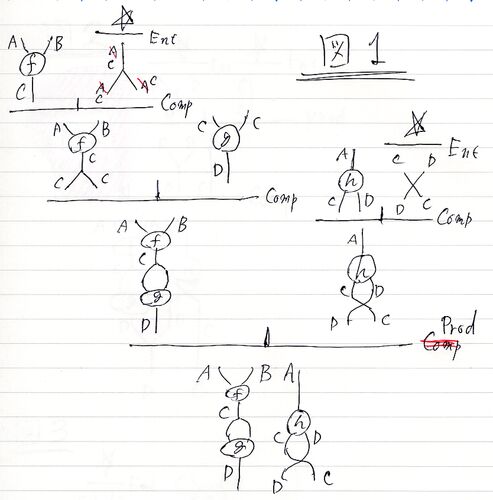 図 1
☆
A B Ent
f A C
C A C A C
Comp
A B C C ☆
f g C D Ent
C A
C C D h
C D D C
Comp Comp
A B A
f h
C C D
g D C
D
Prod
Comp
A B A
f
C h
g C D
D D C